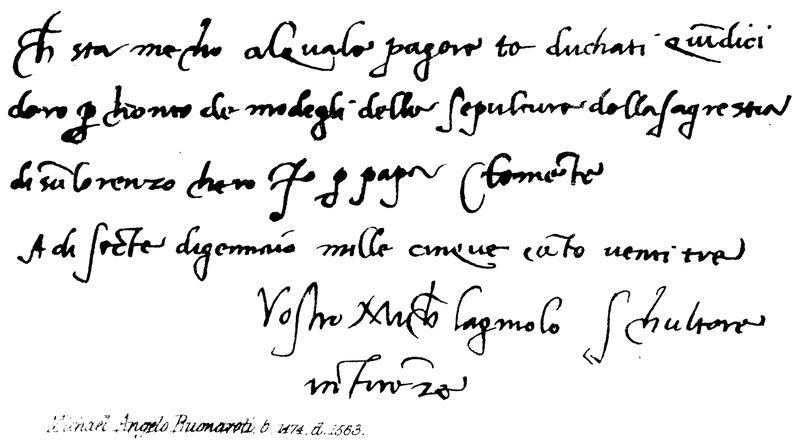 Ch sta mecho alquale pagere te duchati quĩdici
doro p chonto de modegli delle sepulture dellasagrestia
di sã lorenzo che fo p papa Clemẽte
A di secte digennaio mille cinque cẽto venti tre
Vostro Michelagniolo schultore
in firẽze
Michael Angelo Buonaroti, b. 1474. d. 1563.